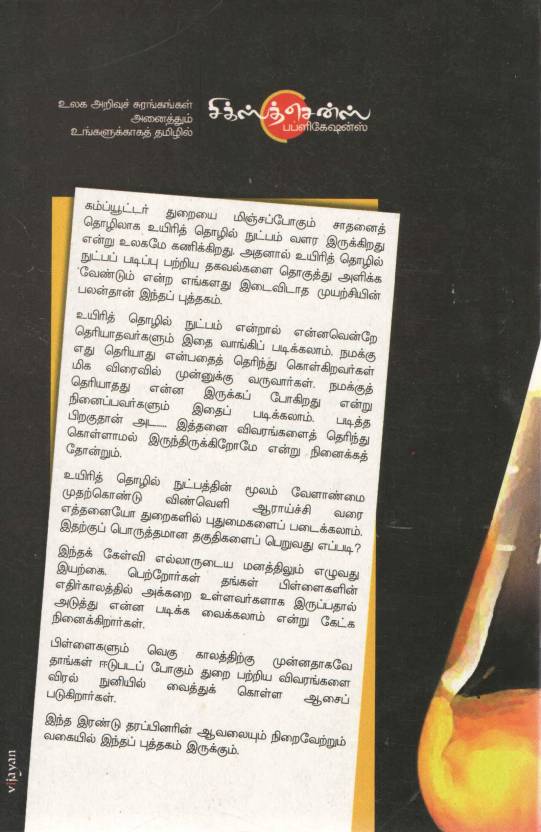 உலக அறிவுச் சுரங்கங்கள்
அனைத்தும்
உங்களுக்காகத் தமிழில்
சிக்ஸ்த்சென்ஸ்
பப்ளிகேஷன்ஸ்
கம்ப்யூட்டர் துறையை மிஞ்சப்போகும் சாதனைத்
தொழிலாக உயிரித் தொழில் நுட்பம் வளர இருக்கிறது
என்று உலகமே கணிக்கிறது. அதனால் உயிரித் தொழில்
நுட்பப் படிப்பு பற்றிய தகவல்களை தொகுத்து அளிக்க
வேண்டும் என்ற எங்களது இடைவிடாத முயற்சியின்
பலன்தான் இந்தப் புத்தகம்.
உயிரித் தொழில் நுட்பம் என்றால் என்னவென்றே
தெரியாதவர்களும் இதை வாங்கிப் படிக்கலாம். நமக்கு
எது தெரியாது என்பதைத் தெரிந்து கொள்கிறவர்கள்
மிக விரைவில் முன்னுக்கு வருவார்கள். நமக்குத்
தெரியாதது என்ன இருக்கப் போகிறது என்று
நினைப்பவர்களும் இதைப் படிக்கலாம். படித்த
பிறகுதான் அட..... இத்தனை விவரங்களைத் தெரிந்து
கொள்ளாமல் இருந்திருக்கிறோமே என்று நினைக்கத்
தோன்றும்.
உயிரித் தொழில் நுட்பத்தின் மூலம் வேளாண்மை
முதற்கொண்டு விண்வெளி ஆராய்ச்சி வரை
எத்தனையோ துறைகளில் புதுமைகளைப் படைக்கலாம்.
இதற்குப் பொருத்தமான தகுதிகளைப் பெறுவது எப்படி?
இந்தக் கேள்வி எல்லாருடைய மனத்திலும் எழுவது
இயற்கை. பெற்றோர்கள் தங்கள் பிள்ளைகளின்
எதிர்காலத்தில் அக்கறை உள்ளவர்களாக இருப்பதால்
அடுத்து என்ன படிக்க வைக்கலாம் என்று கேட்க
நினைக்கிறார்கள்.
பிள்ளைகளும் வெகு காலத்திற்கு முன்னதாகவே
தாங்கள் ஈடுபடப் போகும் துறை பற்றிய விவரங்களை
விரல் நுனியில் வைத்துக் கொள்ள ஆசைப்
படுகிறார்கள்.
இந்த இரண்டு தரப்பினரின் ஆவலையும் நிறைவேற்றும்
வகையில் இந்தப் புத்தகம் இருக்கும்.
vijayan